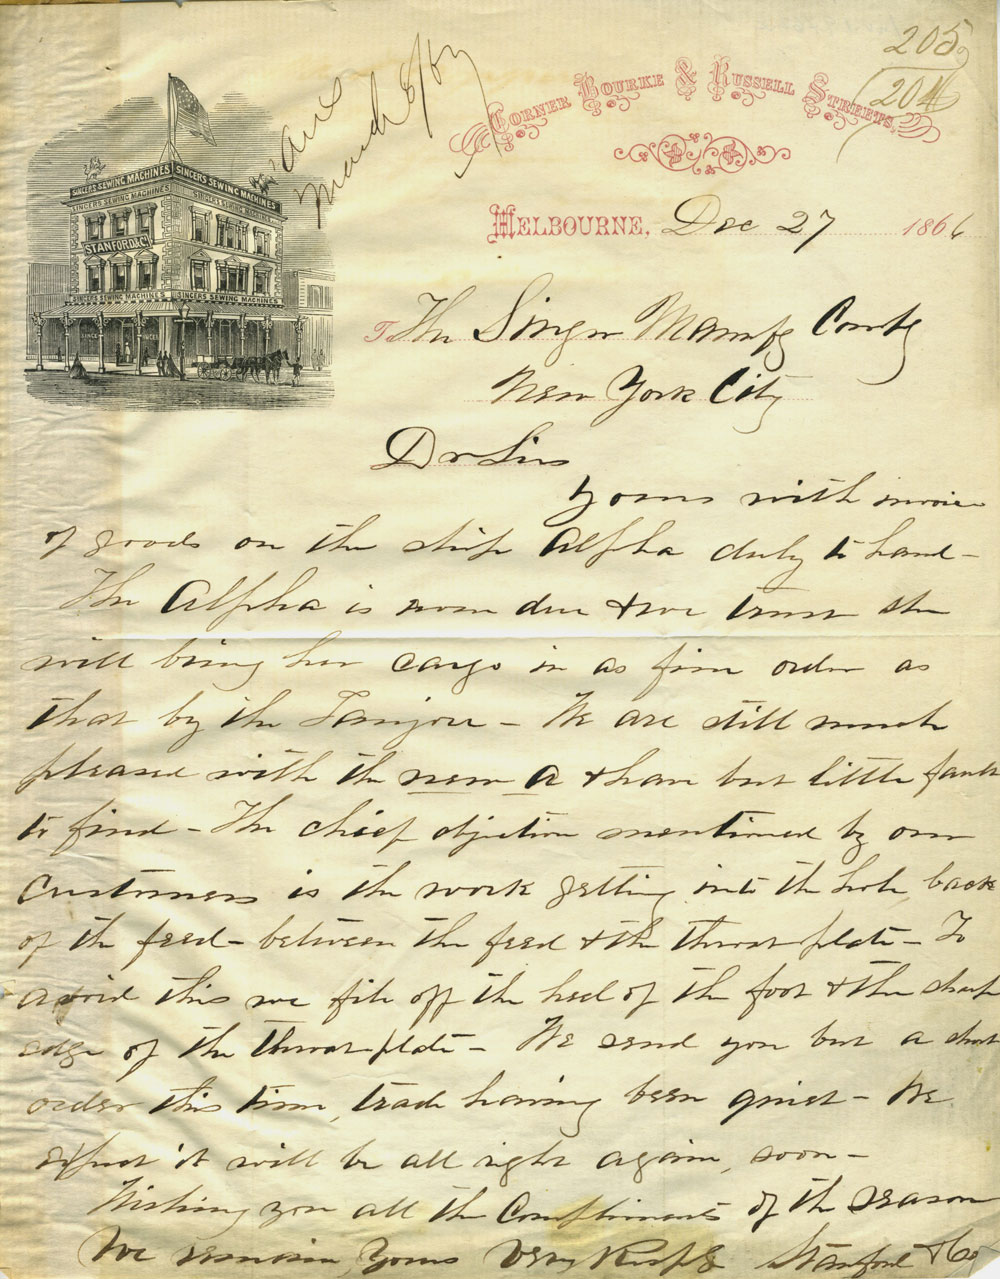 205
204
Ans
March 8/67
Corner Bourke & Russell Streets,
SINGERS SEWING MACHINES SINGERS SEWING MACHINES
SINGERS SEWING MACHINES SINGERS SEWING MACHINES
STANFORD & Co
SINGERS SEWING MACHINES SINGERS SEWING MACHINES
Melbourne, Dec 27 1866
To The Singer Manufg Comty
New York City
Dr Sirs
Yours with invoice
of goods on the ship Alpha duly to hand -
The Alpha is now due & we trust she
will bring her cargo in as fine order as
that by the Tanjore - We are still much
pleased with the new A & have but little fault
to find - The chief objection mentioned by our
Customers is the work getting into the hole back
of the feed - between the feed & the throat plate - To
avoid this we file off the heel of the foot & the sharp
edge of the throat plate - We send you but a short
order this time, trade having been quiet - We
expect it will be all right again, soon -
Wishing you all the Compliments of the season
We remain, Yours Very Respt Stanford & Co